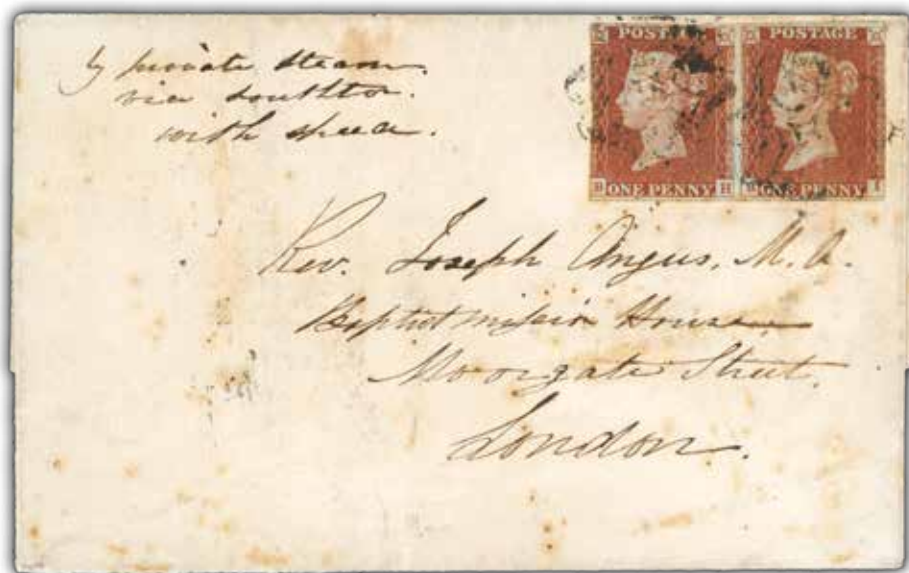 by private steam.
via southtn.
with speed.
POSTAGE
ONE PENNY
B H
POSTAGE
ONE PENNY
B I
Rev. Joseph Angus. M. A.
Baptist mission House
Moorgate Street.
London.